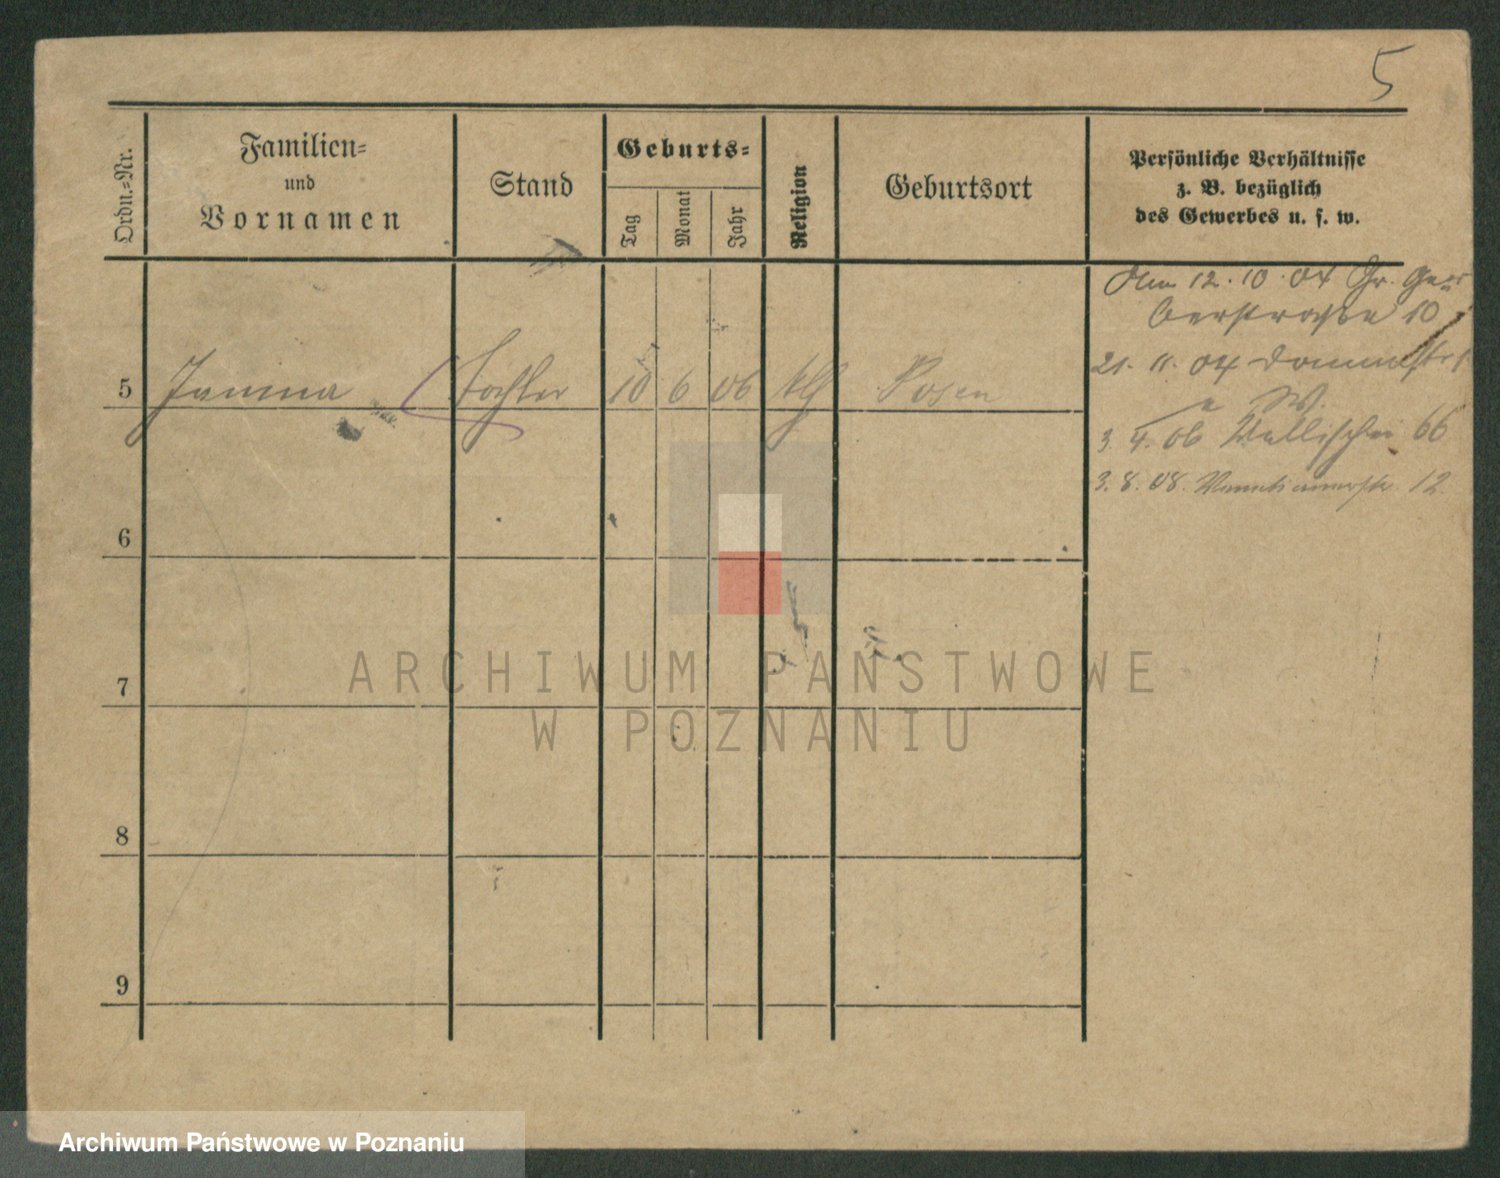 5
Ordn.-Nr.
Familien-
und
Vornamen
Stand
Geburts-
Tag
Monat
Jahr
Religion
Geburtsort
Persönliche Verhältnisse
z. B. bezüglich
des Gewerbes u. s. w.
12.10.04 Gr. Ger
berstraße 10
5 Janina Tochter 10 6 06 kth Posen
21.11.04 Dominikstr
3.4.06 Wallischei 66
3.8.08. Venetianerstr. 12.
6
7
8
9
ARCHIWUM PAŃSTWOWE
W POZNANIU
Archiwum Państwowe w Poznaniu